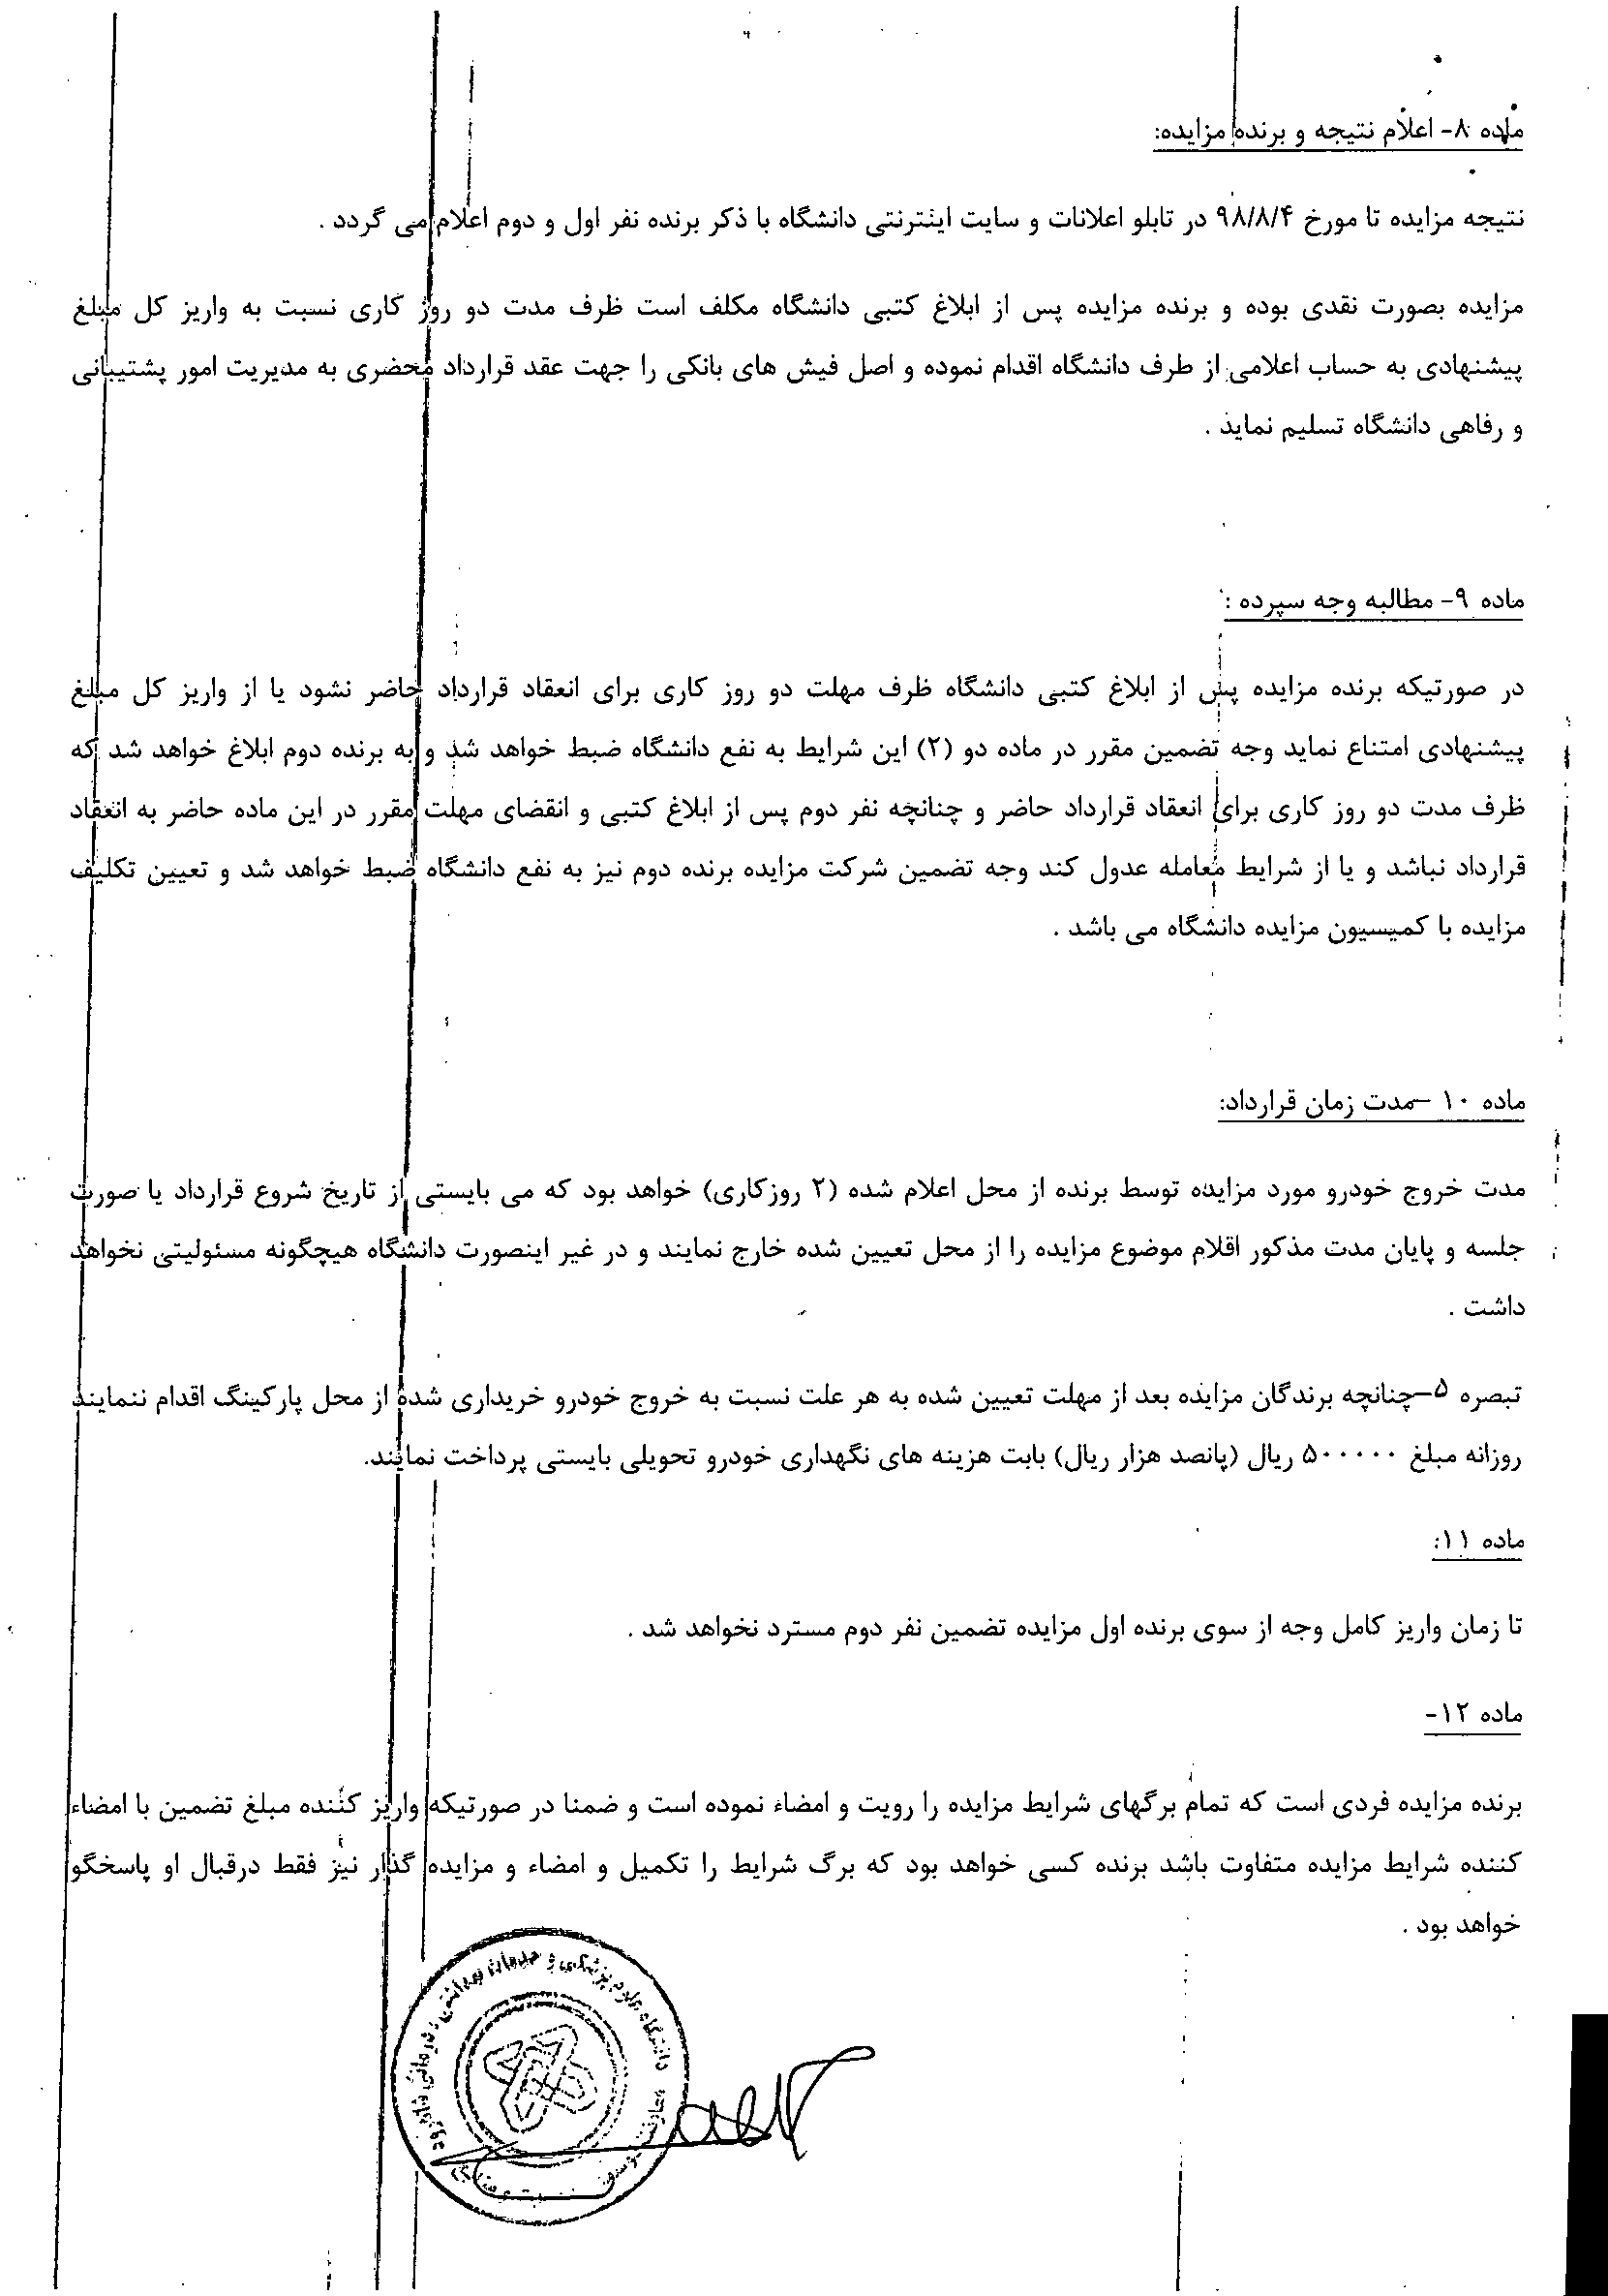 ماده ۸- اعلام نتیجه و برنده مزایده:
نتیجه مزایده تا مورخ ۹۸/۸/۴ در تابلو اعلانات و سایت اینترنتی دانشگاه با ذکر برنده نفر اول و دوم اعلام می گردد .
مزایده بصورت نقدی بوده و برنده مزایده پس از ابلاغ کتبی دانشگاه مکلف است ظرف مدت دو روز کاری نسبت به واریز کل مبلغ
پیشنهادی به حساب اعلامی از طرف دانشگاه اقدام نموده و اصل فیش های بانکی را جهت عقد قرارداد محضری به مدیریت امور پشتیبانی
و رفاهی دانشگاه تسلیم نماید .
ماده ۹- مطالبه وجه سپرده :
در صورتیکه برنده مزایده پس از ابلاغ کتبی دانشگاه ظرف مهلت دو روز کاری برای انعقاد قرارداد حاضر نشود یا از واریز کل مبلغ
پیشنهادی امتناع نماید وجه تضمین مقرر در ماده دو (۲) این شرایط به نفع دانشگاه ضبط خواهد شد و به برنده دوم ابلاغ خواهد شد که
ظرف مدت دو روز کاری برای انعقاد قرارداد حاضر و چنانچه نفر دوم پس از ابلاغ کتبی و انقضای مهلت مقرر در این ماده حاضر به انعقاد
قرارداد نباشد و یا از شرایط معامله عدول کند وجه تضمین شرکت مزایده برنده دوم نیز به نفع دانشگاه ضبط خواهد شد و تعیین تکلیف
مزایده با کمیسیون مزایده دانشگاه می باشد .
ماده ۱۰ –مدت زمان قرارداد:
مدت خروج خودرو مورد مزایده توسط برنده از محل اعلام شده (۲ روزکاری) خواهد بود که می بایستی از تاریخ شروع قرارداد یا صورت
جلسه و پایان مدت مذکور اقلام موضوع مزایده را از محل تعیین شده خارج نمایند و در غیر اینصورت دانشگاه هیچگونه مسئولیتی نخواهد
داشت .
تبصره ۵–چنانچه برندگان مزایده بعد از مهلت تعیین شده به هر علت نسبت به خروج خودرو خریداری شده از محل پارکینگ اقدام ننمایند
روزانه مبلغ ۵۰۰۰۰۰ ریال (پانصد هزار ریال) بابت هزینه های نگهداری خودرو تحویلی بایستی پرداخت نمایند.
ماده ۱۱:
تا زمان واریز کامل وجه از سوی برنده اول مزایده تضمین نفر دوم مسترد نخواهد شد .
ماده ۱۲-
برنده مزایده فردی است که تمام برگهای شرایط مزایده را رویت و امضاء نموده است و ضمنا در صورتیکه واریز کننده مبلغ تضمین با امضاء
کننده شرایط مزایده متفاوت باشد برنده کسی خواهد بود که برگ شرایط را تکمیل و امضاء و مزایده گذار نیز فقط درقبال او پاسخگو
خواهد بود .
دانشگاه علوم پزشکی و خدمات بهداشتی ، درمانی